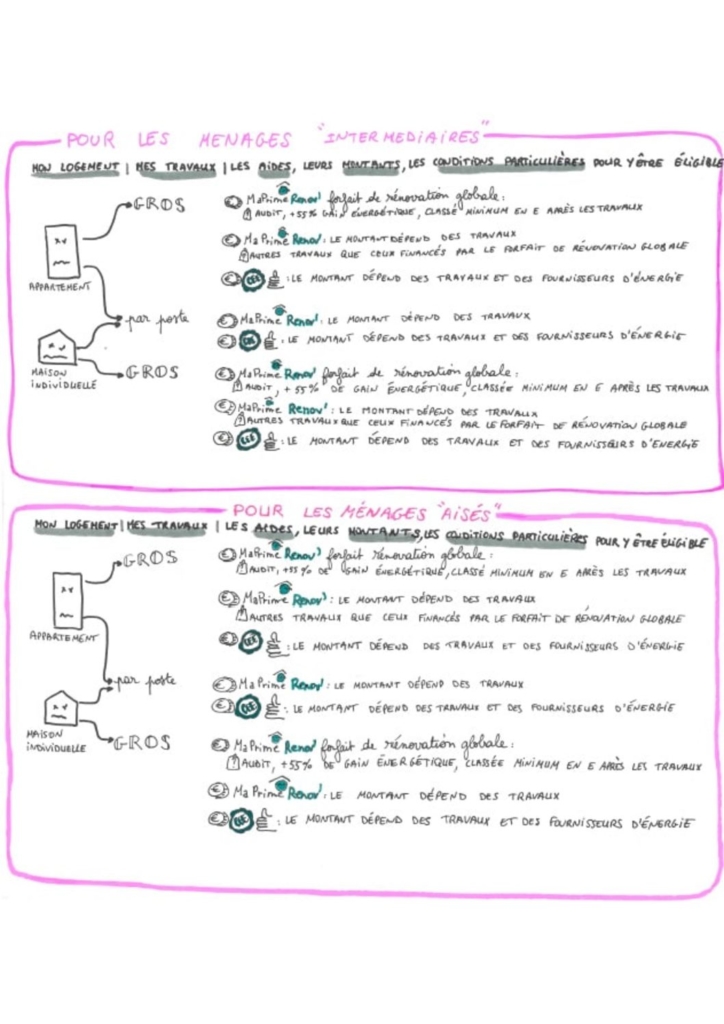 POUR LES MENAGES "INTERMEDIAIRES"
MON LOGEMENT | MES TRAVAUX | LES AIDES, LEURS MONTANTS, LES CONDITIONS PARTICULIÈRES POUR Y ÊTRE ÉLIGIBLE
GROS
MaPrimeRenov' forfait de rénovation globale :
AUDIT, +55% GAIN ÉNERGÉTIQUE, CLASSÉ MINIMUM EN E APRÈS LES TRAVAUX
MaPrimeRenov' : LE MONTANT DÉPEND DES TRAVAUX
AUTRES TRAVAUX QUE CEUX FINANCÉS PAR LE FORFAIT DE RÉNOVATION GLOBALE
APPARTEMENT
CEE : LE MONTANT DÉPEND DES TRAVAUX ET DES FOURNISSEURS D'ÉNERGIE
par poste
MaPrimeRenov' : LE MONTANT DÉPEND DES TRAVAUX
CEE : LE MONTANT DÉPEND DES TRAVAUX ET DES FOURNISSEURS D'ÉNERGIE
MAISON INDIVIDUELLE
GROS
MaPrimeRenov' forfait de rénovation globale :
AUDIT, +55% DE GAIN ÉNERGÉTIQUE, CLASSÉE MINIMUM EN E APRÈS LES TRAVAUX
MaPrime Renov' : LE MONTANT DÉPEND DES TRAVAUX
AUTRES TRAVAUX QUE CEUX FINANCÉS PAR LE FORFAIT DE RÉNOVATION GLOBALE
CEE : LE MONTANT DÉPEND DES TRAVAUX ET DES FOURNISSEURS D'ENERGIE
POUR LES MÉNAGES "AISÉS"
MON LOGEMENT | MES TRAVAUX | LES AIDES, LEURS MONTANTS, LES CONDITIONS PARTICULIÈRES POUR Y ÊTRE ÉLIGIBLE
GROS
MaPrimeRenov' forfait rénovation globale :
AUDIT, +55% DE GAIN ÉNERGÉTIQUE, CLASSÉ MINIMUM EN E APRÈS LES TRAVAUX
MaPrimeRenov' : LE MONTANT DÉPEND DES TRAVAUX
AUTRES TRAVAUX QUE CEUX FINANCÉS PAR LE FORFAIT DE RÉNOVATION GLOBALE
APPARTEMENT
CEE : LE MONTANT DÉPEND DES TRAVAUX ET DES FOURNISSEURS D'ÉNERGIE
par poste
MaPrimeRenov' : LE MONTANT DÉPEND DES TRAVAUX
CEE : LE MONTANT DÉPEND DES TRAVAUX ET DES FOURNISSEURS D'ÉNERGIE
MAISON INDIVIDUELLE
GROS
MaPrimeRenov' forfait de rénovation globale :
AUDIT, +55% DE GAIN ÉNERGÉTIQUE, CLASSÉE MINIMUM EN E APRÈS LES TRAVAUX
MaPrimeRenov' : LE MONTANT DÉPEND DES TRAVAUX
CEE : LE MONTANT DÉPEND DES TRAVAUX ET DES FOURNISSEURS D'ÉNERGIE